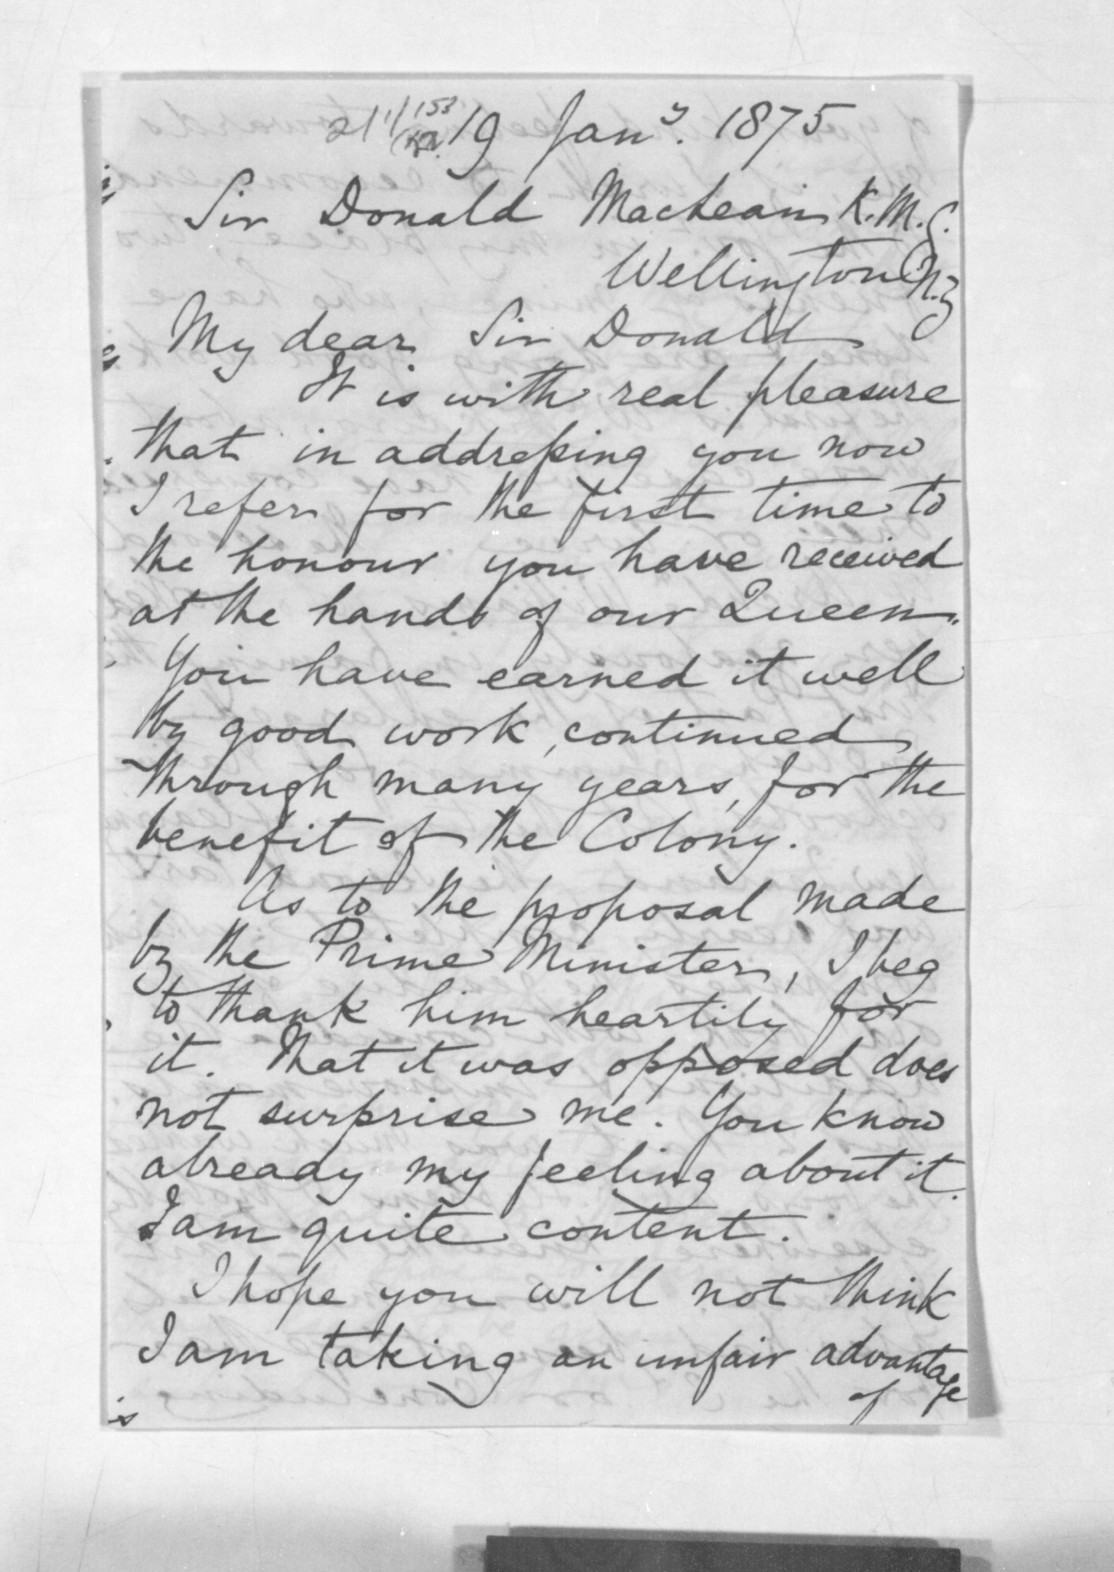 19 Jany. 1875
Sir Donald MacLean K.M.G.
Wellington N.Z
My dear Sir Donald
It is with real pleasure
that in addressing you now
I refer for the first time to
the honour you have received
at the hands of our Queen.
You have earned it well
by good work, continued
through many years, for the
benefit of the Colony.
As to the proposal made
by the Prime Minister, I beg
to thank him heartily for
it. That it was opposed does
not surprise me. You know
already my feeling about it.
I am quite content.
I hope you will not think
I am taking an unfair advantage
of